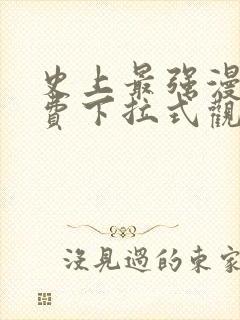 史上最强漫
費下拉式觀
沒見過的東家